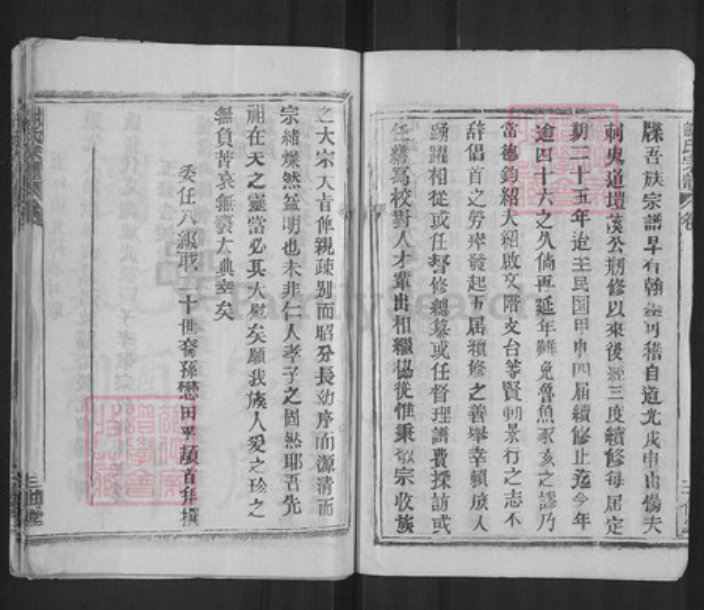 牒吾族宗譜早有翰墨可稽自道光戊申由僃夫
刺史道壇溪公剏修以來後經三度續修每屆定
期二十五年迨至民国甲申四届續修止迄今年
逾四十六之久倘再延年難免魯魚豕亥之謬乃
當德鈞紹夫紹啟文階支台等賢動景行之志不
辭倡首之勞率發起五届續修之善舉幸賴族人
踴躍相從或任督修總纂或任督理譜費採訪或
任謄寫校對人才輩出相繼協從惟秉敬宗收族
之大宗大旨俾親疎别而昭分長幼序而源清而
宗緒燦然益明也未非仁人孝子之固然耶吾先
祖在天之靈當必其大慰矣願我族人爱之珍之
無負苦衷無褻大典幸矣
委任八級職 二十世裔孫懋田 頓首拜撰
三修堂
FamilySearch